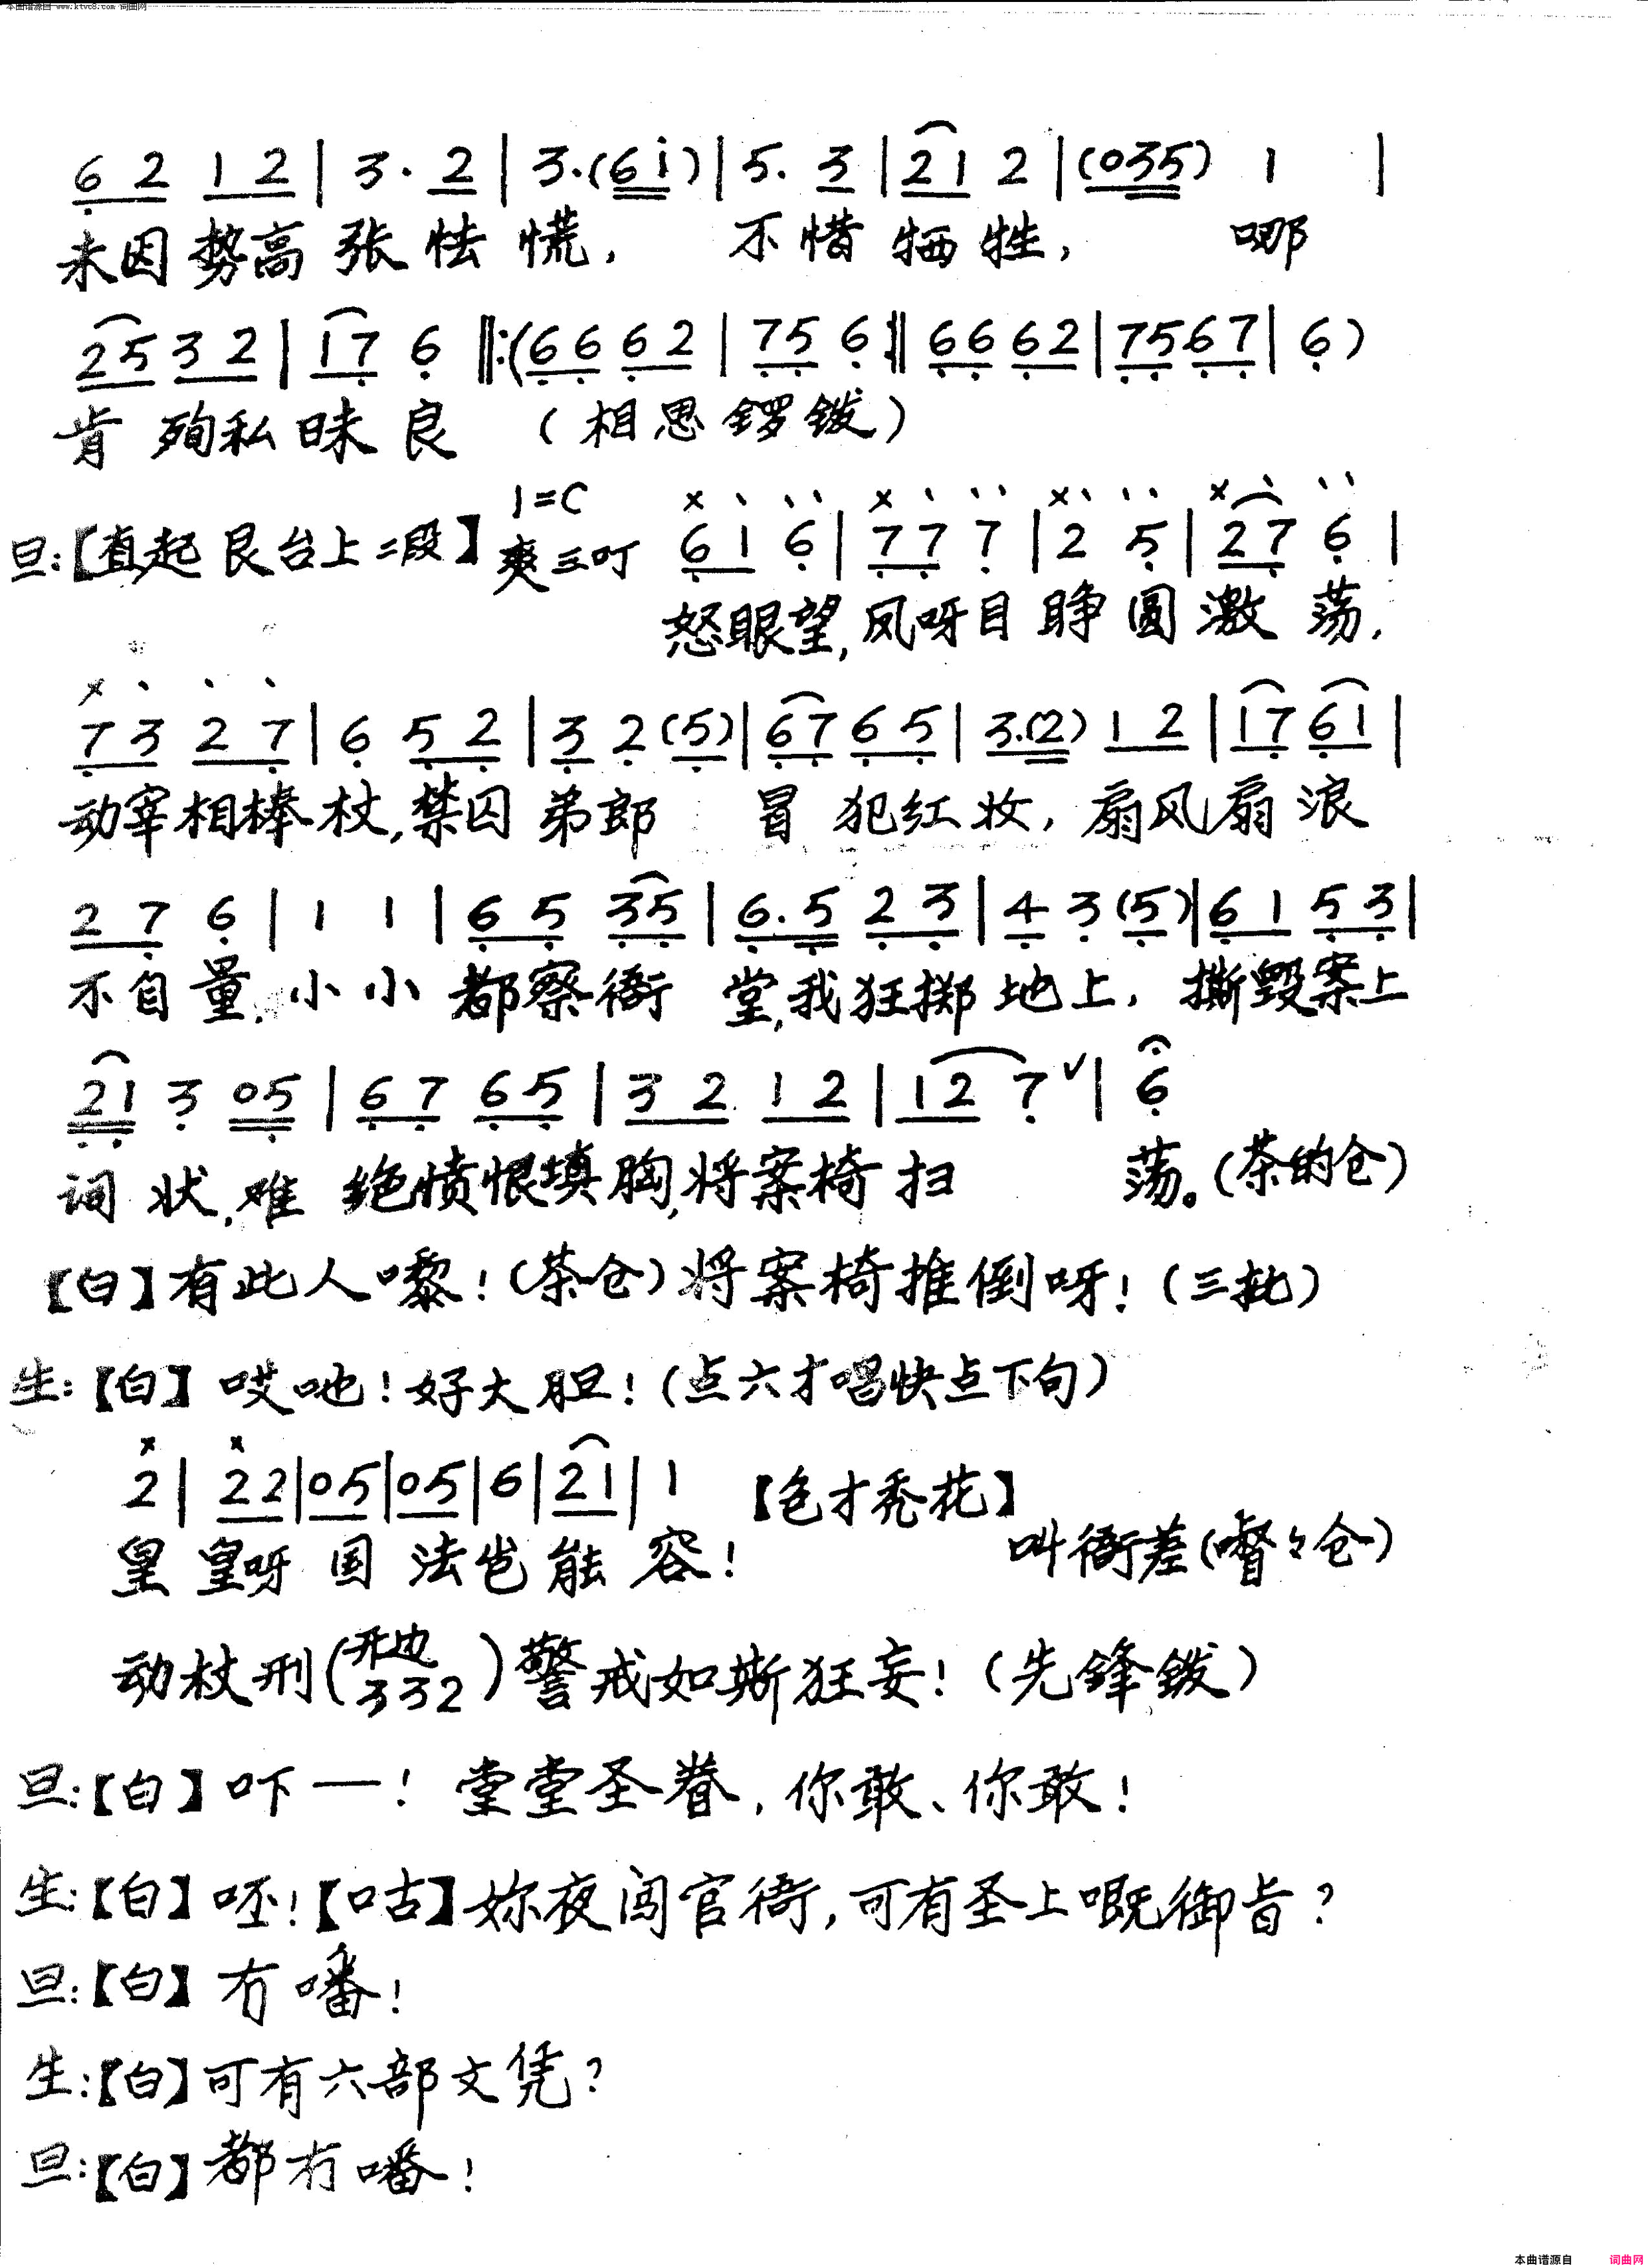 本曲谱源自 www.ktvc8.com 词曲网
6 2 1 2 | 3 · 2 | 3 · (6 i) | 5 · 3 | 2 1 2 | (0 3 5) 1 |
未因势高张怯慌， 不惜牺牲， 哪
2 5 3 2 | 1 7 6 ‖: (6 6 6 2 | 7 5 6 :‖ 6 6 6 2 | 7 5 6 7 | 6)
肯殉私昧良 （相思锣钹）
旦:【直起艮台上二段】1=C 爽三叮 6 1 6 | 7 7 7 | 2 5 | 2 7 6 |
怒眼望,凤呀目睁圆激荡,
7 3 2 7 | 6 5 2 | 3 2 (5) | 6 7 6 5 | 3 · (2) 1 2 | 1 7 6 1 |
动宰相棒杖,禁囚弟郎 冒犯红妆,扇风扇浪
2 7 6 | 1 1 | 6 5 3 5 | 6 · 5 2 3 | 4 3 (5) | 6 1 5 3 |
不自量,小小都察衙堂,我狂掷地上,撕毁案上
2 1 3 0 5 | 6 7 6 5 | 3 2 1 2 | 1 2 7 ∨ | 6
词状,难绝愤恨填胸,将案椅扫 荡。(茶的仓)
【白】有此人嚟!(茶仓)将案椅推倒呀!(三批)
生:【白】哎吔!好大胆!(点六才唱快点下句)
2 | 2 2 | 0 5 | 0 5 | 6 | 2 1 | 1 【包才秃花】
皇皇呀国法岂能容! 叫衙差(嘈々仓)
动杖刑(开边 3 3 2)警戒如斯狂妄!(先锋钹)
旦:【白】吓一!堂堂圣眷,你敢、你敢!
生:【白】呸!【口古】妳夜闯官衙,可有圣上嘅御旨?
旦:【白】冇噃!
生:【白】可有六部文凭?
旦:【白】都冇噃!
本曲谱源自 词曲网